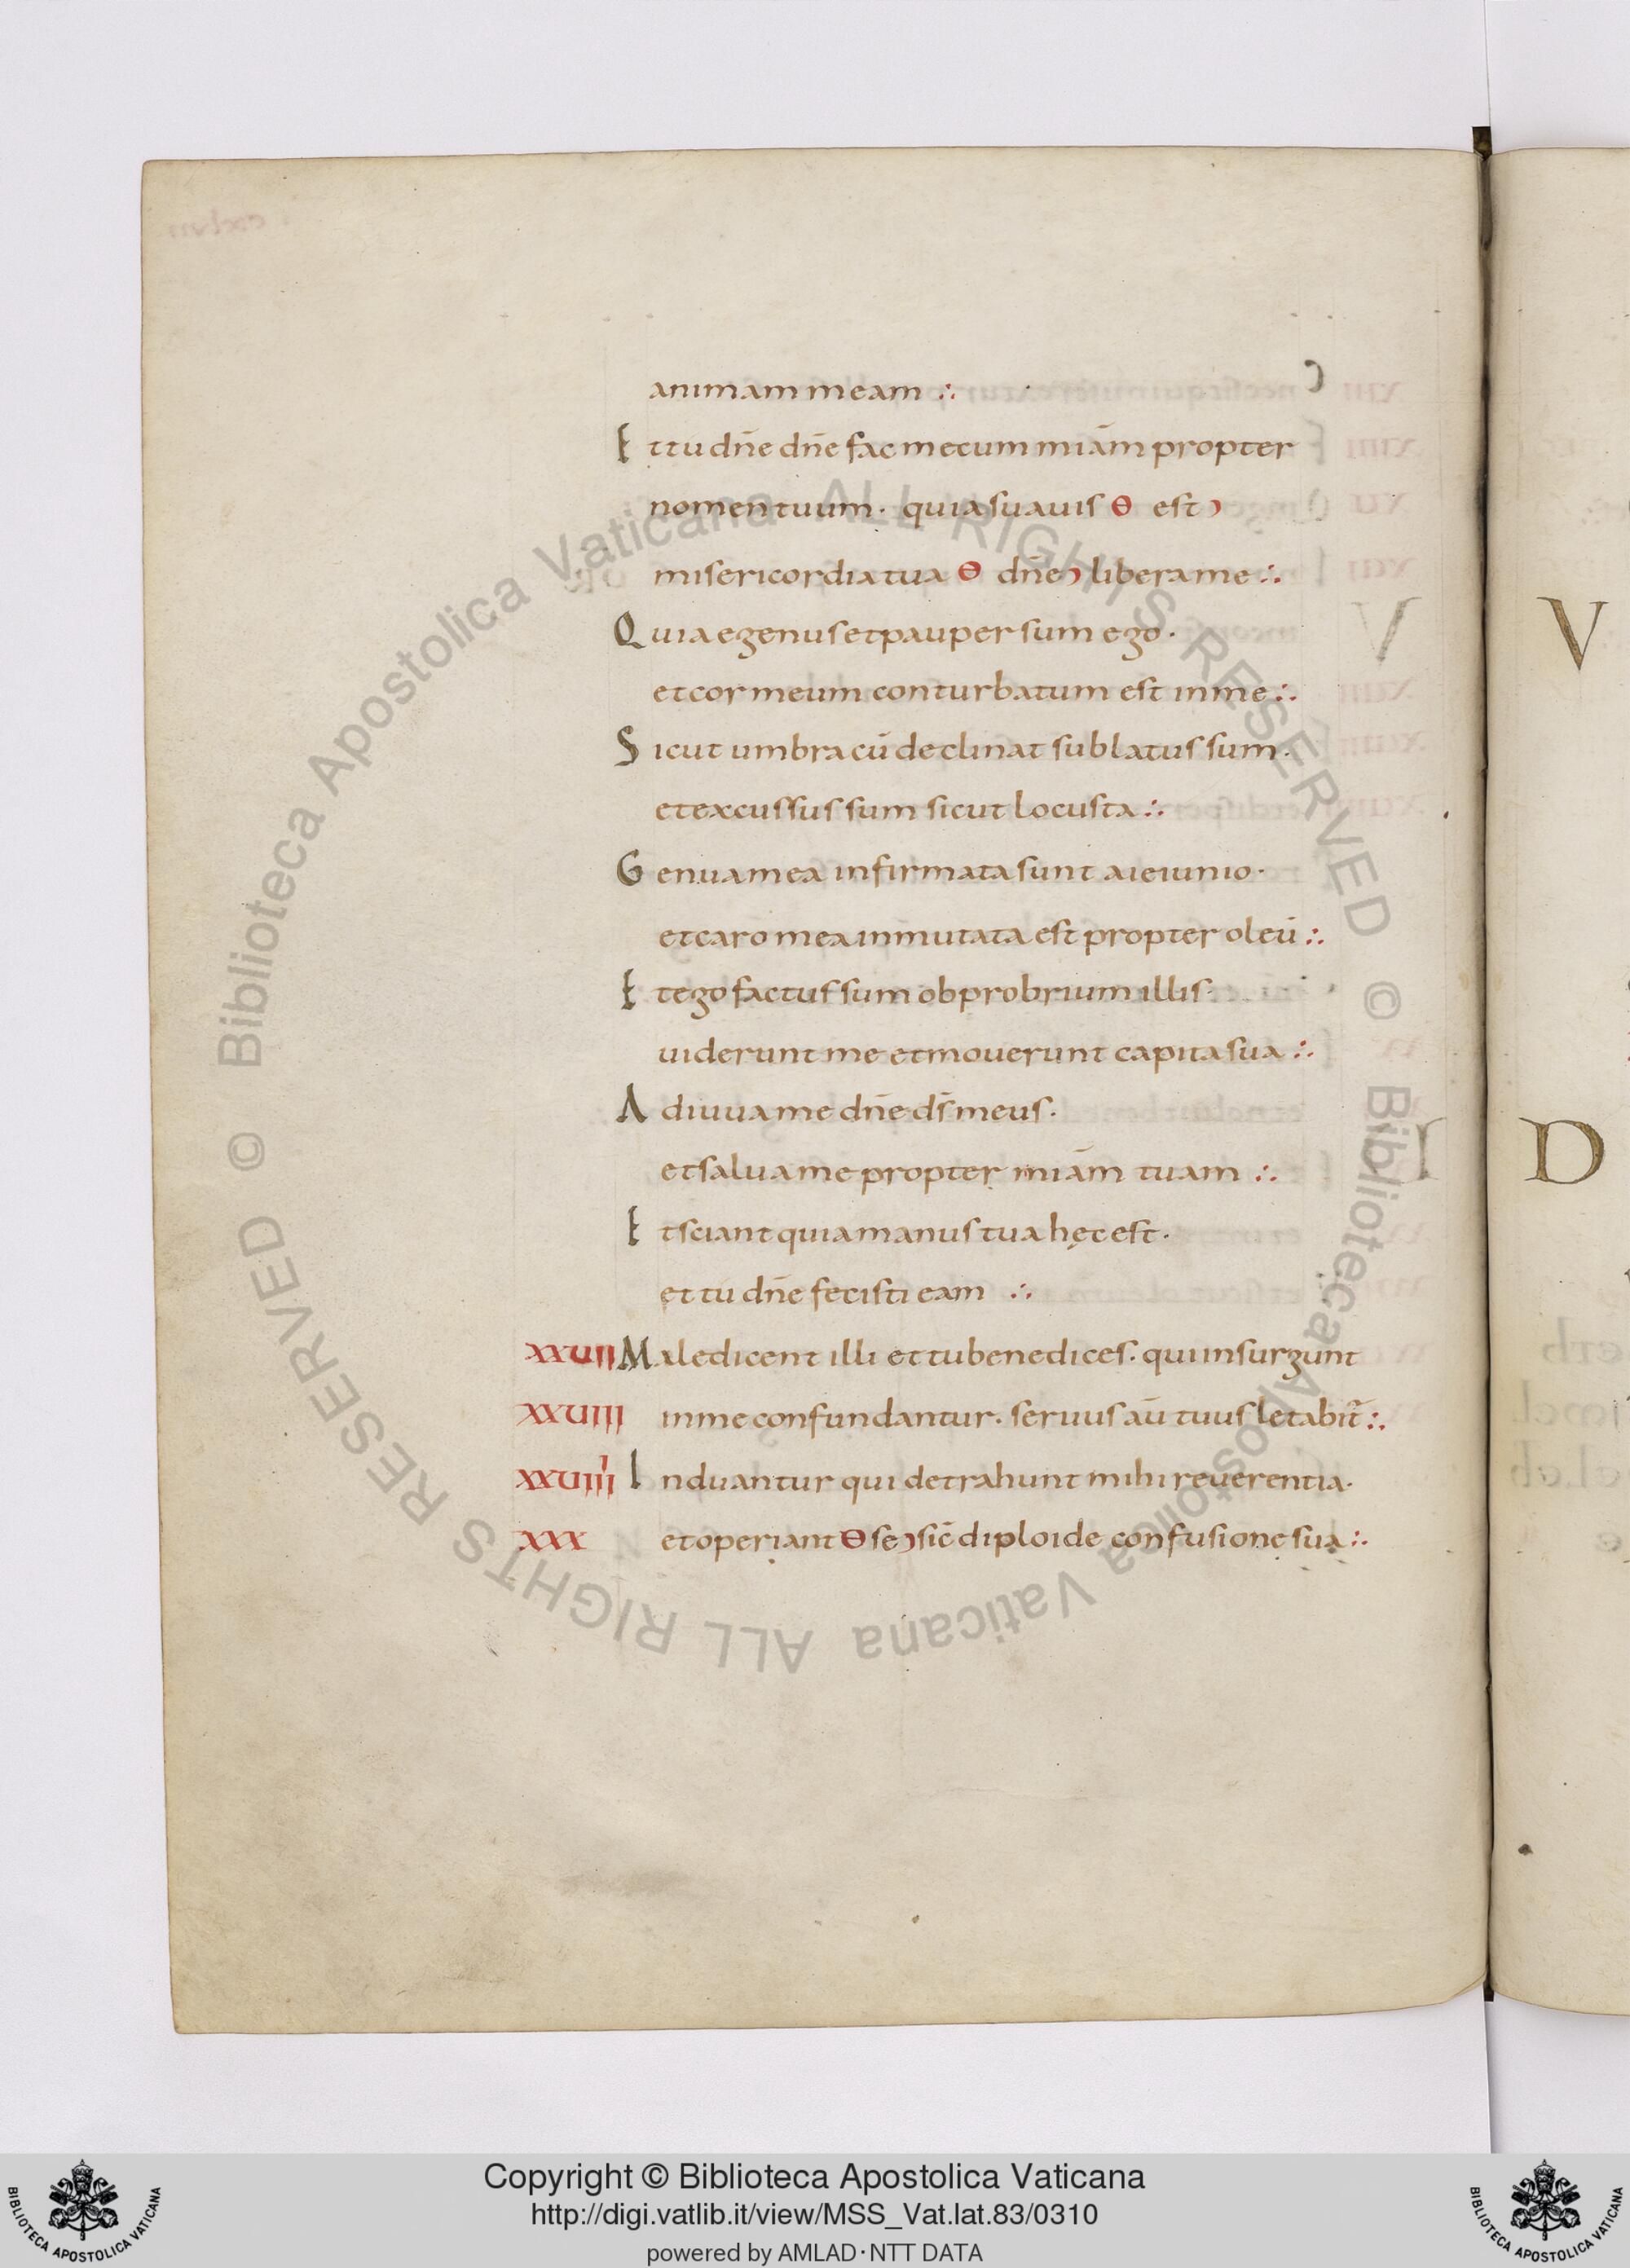 animam meam ∴
Et tu dn̄e dn̄e fac mecum miām propter
nomen tuum · quia suauis Θ est ͻ
misericordia tua Θ dn̄e ͻ libera me ∴
Quia egenus et pauper sum ego ·
et cor meum conturbatum est in me ∴
Sicut umbra cū declinat sublatus sum ·
et excussus sum sicut locusta ∴
Genua mea infirmata sunt a ieiunio ·
et caro mea inmutata est propter oleū ∴
Et ego factus sum obprobrium illis ·
uiderunt me et mouerunt capita sua ∴
Adiuua me dn̄e ds̄ meus ·
et salua me propter miām tuam ∴
Et sciant quia manus tua hęc est ·
et tu dn̄e fecisti eam ∴
XXUII Maledicent illi et tu benedices · qui insurgunt
XXUIII in me confundantur · seruus aū tuus letabit̄ ∴
XXUIIII Induantur qui detrahunt mihi reuerentia ·
XXX et operiant Θ se ͻ sic̄ diploide confusione sua ∴
V
D
© Biblioteca Apostolica Vaticana ALL RIGHTS RESERVED © Biblioteca Apostolica Vaticana ALL RIGHTS RESERVED
Copyright © Biblioteca Apostolica Vaticana
http://digi.vatlib.it/view/MSS_Vat.lat.83/0310
powered by AMLAD·NTT DATA
BIBLIOTECA APOSTOLICA VATICANA
BIBLIOTECA APOSTOLICA VATICANA